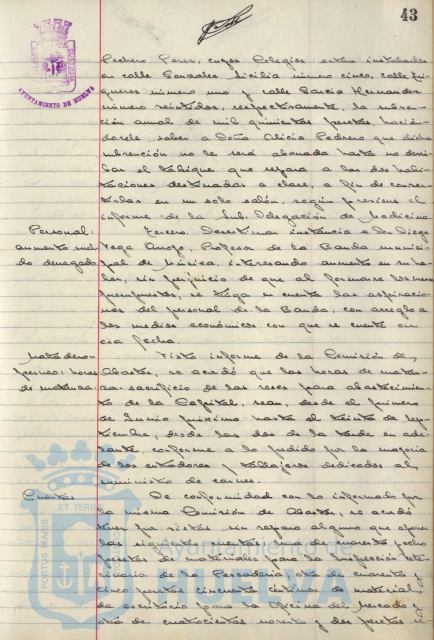 43
AYUNTAMIENTO DE HUELVA
Pedrero Perez, cuyos Colegios estan instalados
en calle Gonzalez Sicilia número cinco, calle Fi-
gueroa número uno y calle Garcia Hernandez
número veintidos, respectivamente, la subven-
ción anual de mil quinientas pesetas, hacién-
dosele saber a Doña Alicia Pedrero que dicha
subvención no le será abonada hasta no derri-
bar el tabique que separa a las dos habi-
taciones destinadas a clase, a fin de conver-
tirlas en un solo salón, según previene el
informe de la Sub. Delegación de Medicina.
Personal:
aumento suel-
do denegado
Tercero. Desestimar instancia a Dn Diego
Vega Arroyo, Profesor de la Banda munici-
pal de Música, interesando aumento en su ha-
ber, sin perjuicio de que al formarse los nuevos
presupuestos, se tenga en cuenta las aspiracio-
nes del personal de la Banda, con arreglo a
los medios económicos con que se cuente en
esa fecha.
Matadero-
: horas
de matanza.
Visto informe de la Comisión de
Abastos, se acordó que las horas de matan-
za-sacrificio de las reses para abastecimien-
to de la Capital, sean, desde el primero
de Junio próximo hasta el treinta de Sep-
tiembre, desde las dos de la tarde en ade-
lante, conforme a lo pedido por la mayoria
de los entradores y tablajeros dedicados al
suministro de carnes.
Cuentas
De conformidad con lo informado por
la misma Comisión de Abastos, se acordó
tener por vistas sin reparo alguno que oponer
las siguientes cuentas: una de cuarenta y ocho
pesetas de materiales para la Inspección Vete-
rinaria de la Pescaderia; otra de cuarenta y
cinco pesetas cincuenta céntimos de material
de escritorio para la Oficina del Mercado y
otra de cuatrocientas noventa y dos pesetas
PORTUS MARIS ET TERRAE
Ayuntamiento de
HUELVA